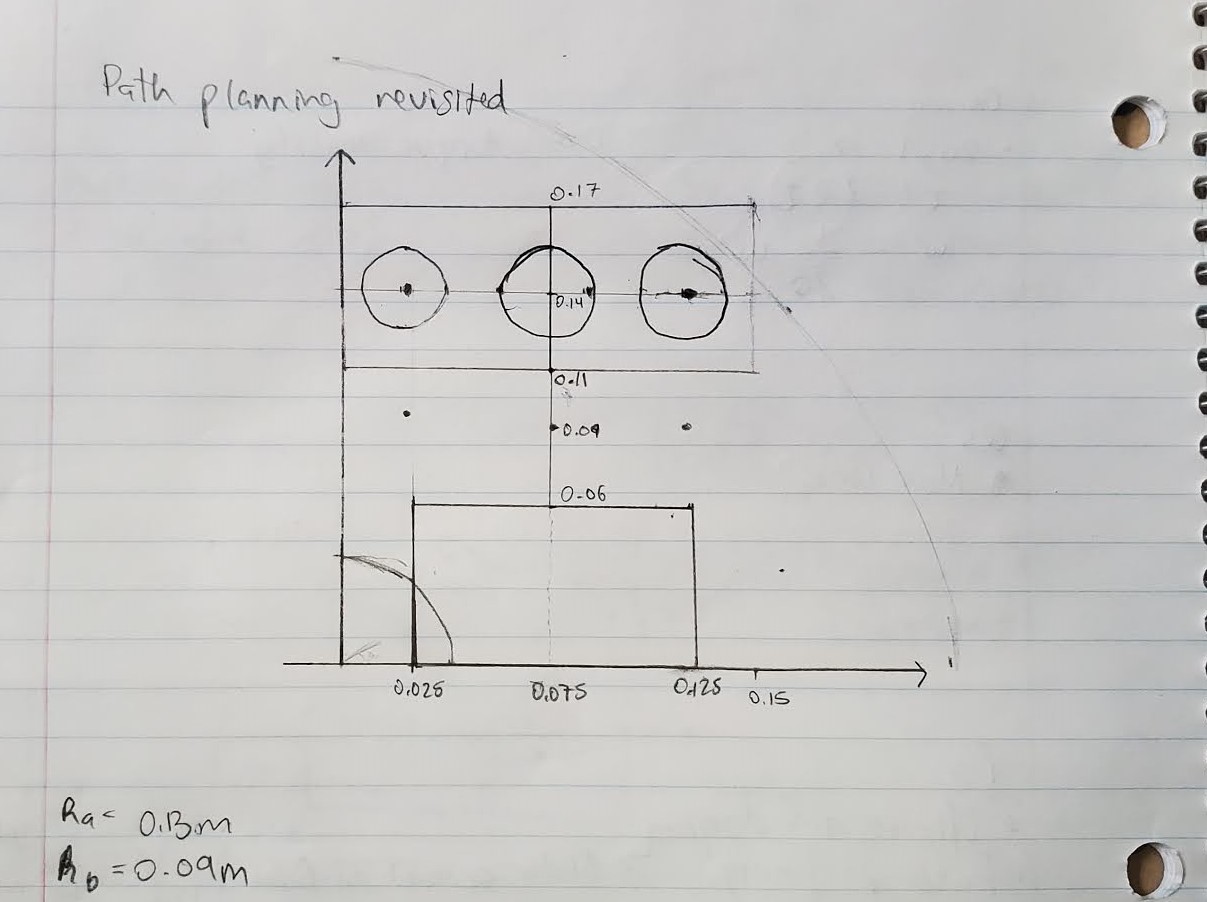 Path planning revisited
0.17
0.14
0.11
0.09
0.06
0.025 0.075 0.125 0.15
Ra= 0.13m
Rb = 0.09m